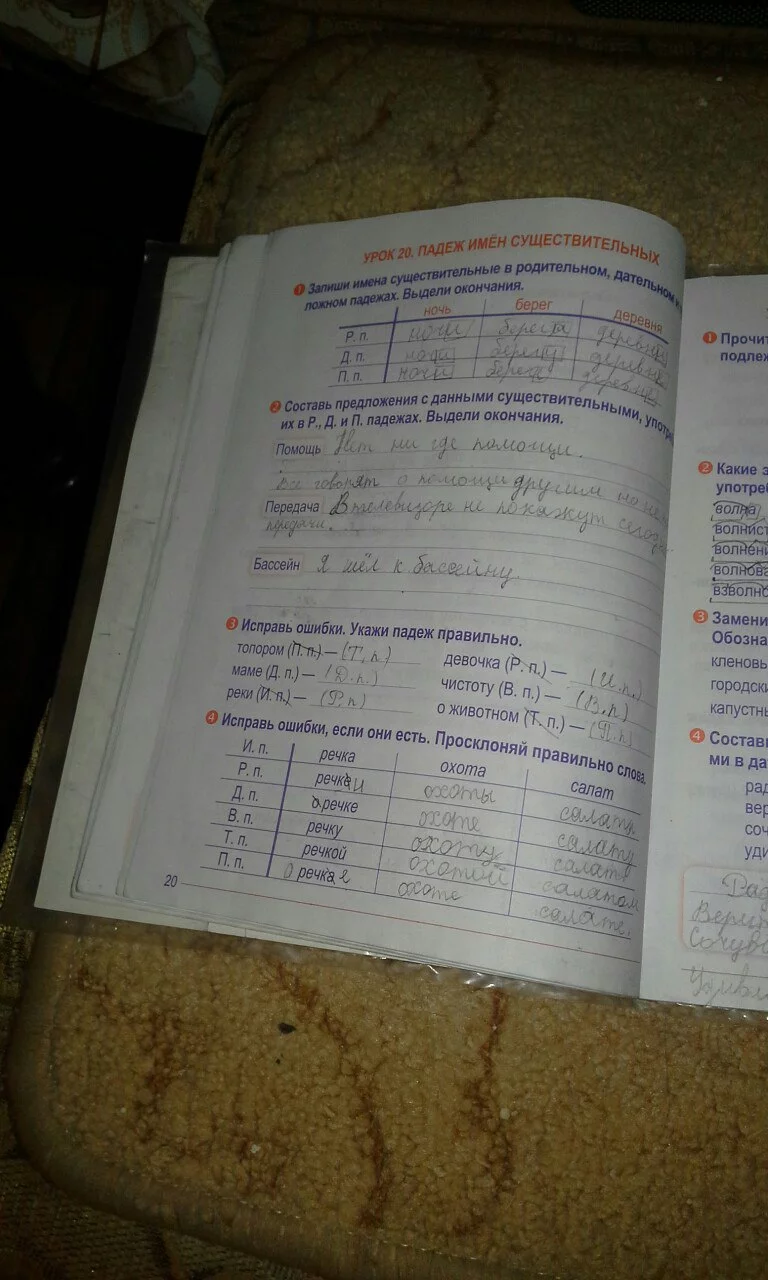 УРОК 20. ПАДЕЖ ИМЁН СУЩЕСТВИТЕЛЬНЫХ
1 Запиши имена существительные в родительном, дательном и
ложном падежах. Выдели окончания.
ночь берег деревня
Р. п. ночи берега деревни
Д. п. ночи берегу деревне
П. п. ночи береге деревне
2 Составь предложения с данными существительными, употре
их в Р., Д. и П. падежах. Выдели окончания.
Помощь Нет ни где помощи.
Все говорят о помощи другим но не
Передача В телевизоре не покажут
передачи.
Бассейн Я шёл к бассейну.
3 Исправь ошибки. Укажи падеж правильно.
топором (П. п.) — (Т. п) девочка (Р. п.) — (И. п.)
маме (Д. п.) — (Д. п.) чистоту (В. п.) — (В. п)
реки (И. п.) — (Р. п) о животном (Т. п.) — (П. п)
4 Исправь ошибки, если они есть. Просклоняй правильно слова.
И. п. речка охота салат
Р. п. речки охоты салата
Д. п. о речке охоте салату
В. п. речку охоту салат
Т. п. речкой охотой салатом
П. п. О речке охоте салате.
20
1 Прочит
подлеж
2 Какие з
употреб
волна
волнист
волнени
волнова
взволно
3 Замени
Обозна
кленовы
городски
капустн
4 Состав
ми в да
рад
вер
соч
уди
Рад
Верит
Сочув
Удивл